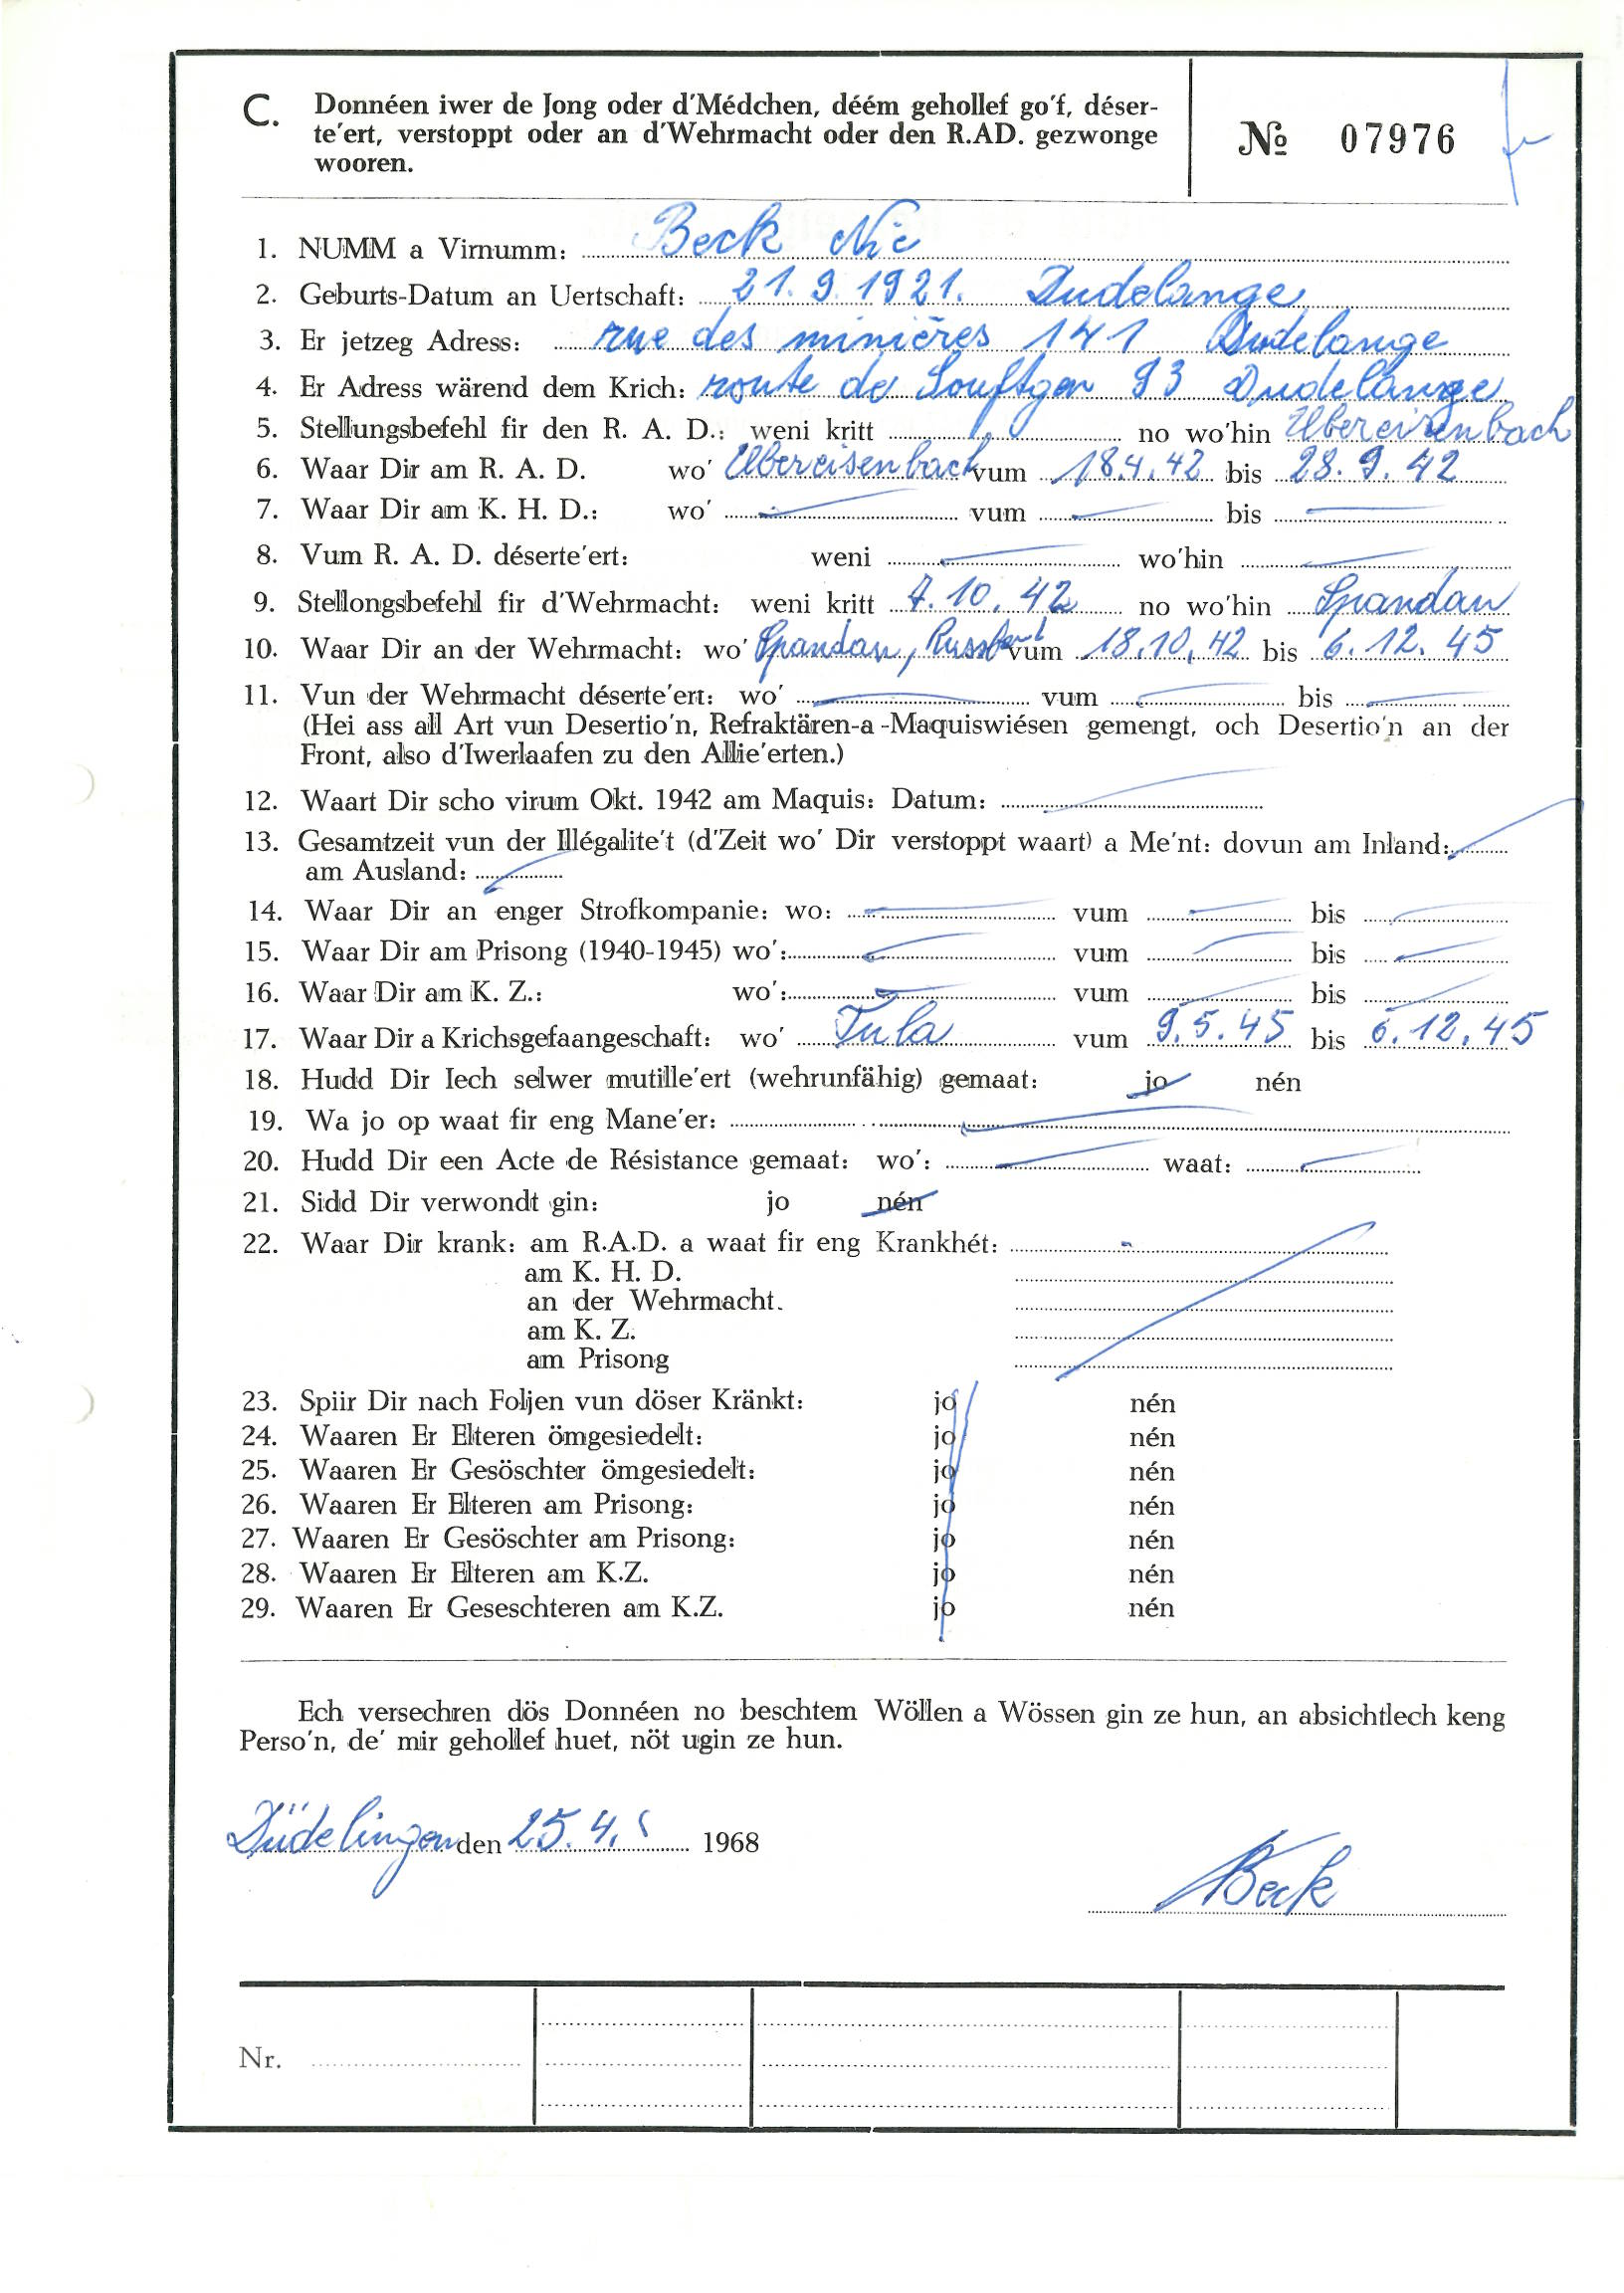 C. Donnéen iwer de Jong oder d'Médchen, déém gehollef go'f, déser-
te'ert, verstoppt oder an d'Wehrmacht oder den R.AD. gezwonge
wooren.
№ 07976
1. NUMM a Virnumm: Beck Nic
2. Geburts-Datum an Uertschaft: 21.9.1921. Dudelange
3. Er jetzeg Adress: rue des minières 141 Dudelange
4. Er Adress wärend dem Krich: route de Souftgen 93 Dudelange
5. Stellungsbefehl fir den R. A. D.: weni kritt no wo'hin Ubereisenbach
6. Waar Dir am R. A. D. wo' Ubereisenbach vum 18.4.42 bis 28.9.42
7. Waar Dir am K. H. D.: wo' vum bis
8. Vum R. A. D. déserte'ert: weni wo'hin
9. Stellongsbefehl fir d'Wehrmacht: weni kritt 7.10.42 no wo'hin Spandau
10. Waar Dir an der Wehrmacht: wo' Spandau, vum 18.10.42 bis 6.12.45
11. Vun der Wehrmacht déserte'ert: wo' vum bis
(Hei ass all Art vun Desertio'n, Refraktären-a-Maquiswiésen gemengt, och Desertio'n an der
Front, also d'Iwerlaafen zu den Allie'erten.)
12. Waart Dir scho virum Okt. 1942 am Maquis: Datum:
13. Gesamtzeit vun der Illégalite't (d'Zeit wo' Dir verstoppt waart) a Me'nt: dovun am Inland:
am Ausland:
14. Waar Dir an enger Strofkompanie: wo: vum bis
15. Waar Dir am Prisong (1940-1945) wo': vum bis
16. Waar Dir am K. Z.: wo': vum bis
17. Waar Dir a Krichsgefaangeschaft: wo' Tula vum 9.5.45 bis 6.12.45
18. Hudd Dir Iech selwer mutille'ert (wehrunfähig) gemaat: jo nén
19. Wa jo op waat fir eng Mane'er:
20. Hudd Dir een Acte de Résistance gemaat: wo': waat:
21. Sidd Dir verwondt gin: jo nén
22. Waar Dir krank: am R.A.D. a waat fir eng Krankhét: -
am K. H. D.
an der Wehrmacht.
am K. Z.
am Prisong
23. Spiir Dir nach Foljen vun döser Kränkt: jo nén
24. Waaren Er Elteren ömgesiedelt: jo nén
25. Waaren Er Gesöschter ömgesiedelt: jo nén
26. Waaren Er Elteren am Prisong: jo nén
27. Waaren Er Gesöschter am Prisong: jo nén
28. Waaren Er Elteren am K.Z. jo nén
29. Waaren Er Geseschteren am K.Z. jo nén
Ech versechren dös Donnéen no beschtem Wöllen a Wössen gin ze hun, an absichtlech keng
Perso'n, de' mir gehollef huet, nöt ugin ze hun.
Düdelingen den 25.4. 1968
Beck
Nr.